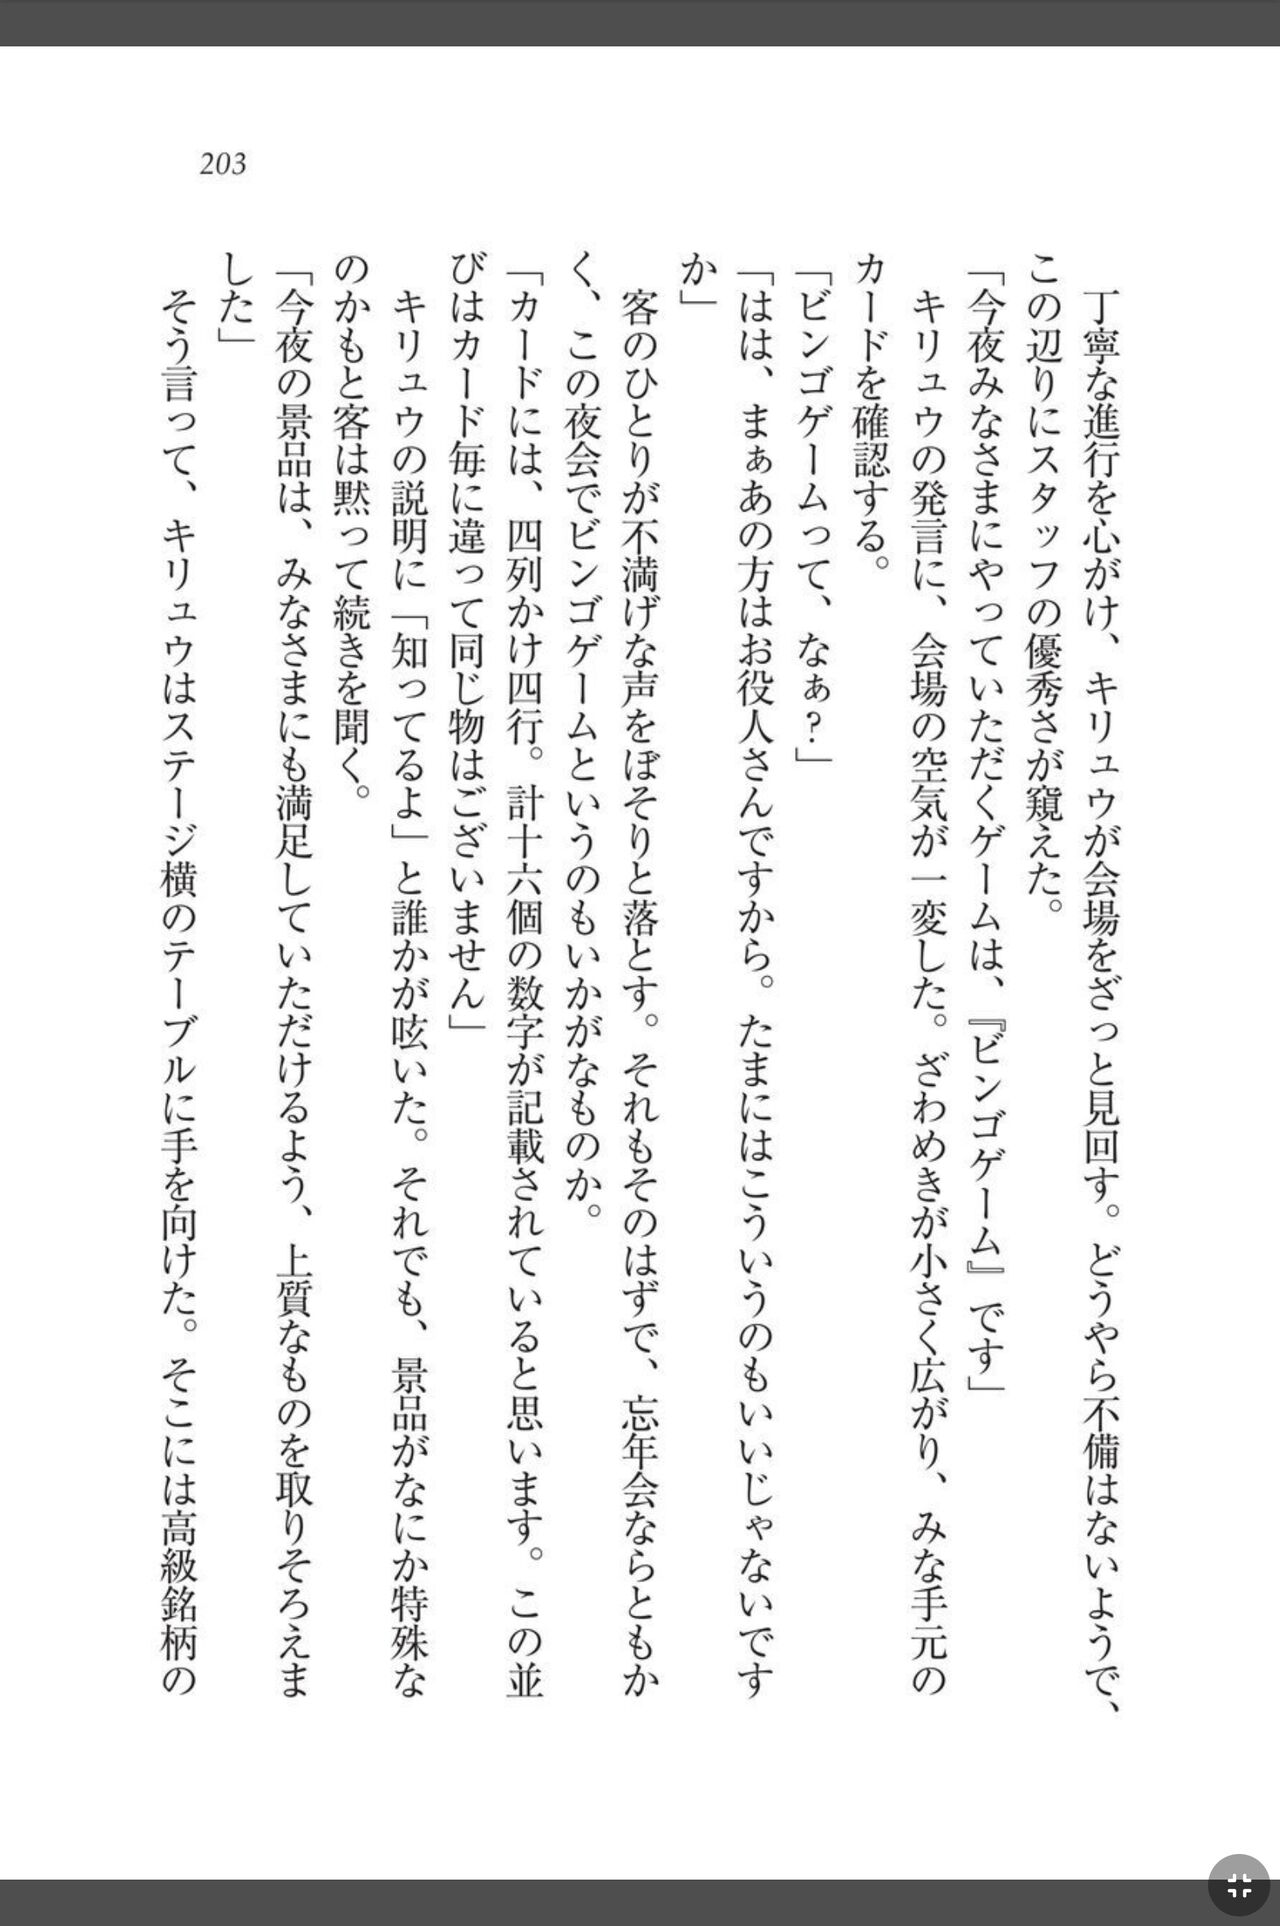 203
丁寧な進行を心がけ、キリュウが会場をざっと見回す。どうやら不備はないようで、
この辺りにスタッフの優秀さが窺えた。
「今夜みなさまにやっていただくゲームは、『ビンゴゲーム』です」
キリュウの発言に、会場の空気が一変した。ざわめきが小さく広がり、みな手元の
カードを確認する。
「ビンゴゲームって、なぁ？」
「はは、まぁあの方はお役人さんですから。たまにはこういうのもいいじゃないです
か」
客のひとりが不満げな声をぼそりと落とす。それもそのはずで、忘年会ならともか
く、この夜会でビンゴゲームというのもいかがなものか。
「カードには、四列かけ四行。計十六個の数字が記載されていると思います。この並
びはカード毎に違って同じ物はございません」
キリュウの説明に「知ってるよ」と誰かが呟いた。それでも、景品がなにか特殊な
のかもと客は黙って続きを聞く。
「今夜の景品は、みなさまにも満足していただけるよう、上質なものを取りそろえま
した」
そう言って、キリュウはステージ横のテーブルに手を向けた。そこには高級銘柄の